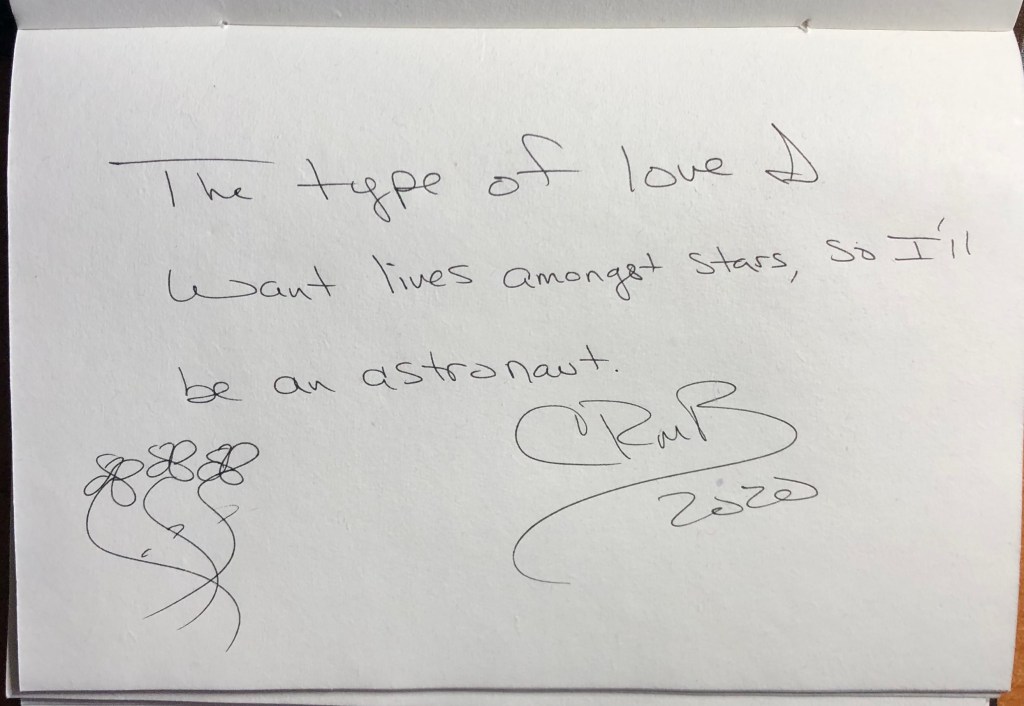 The type of love I
want lives amongst stars, so I'll
be an astronaut.
CRMB
2020